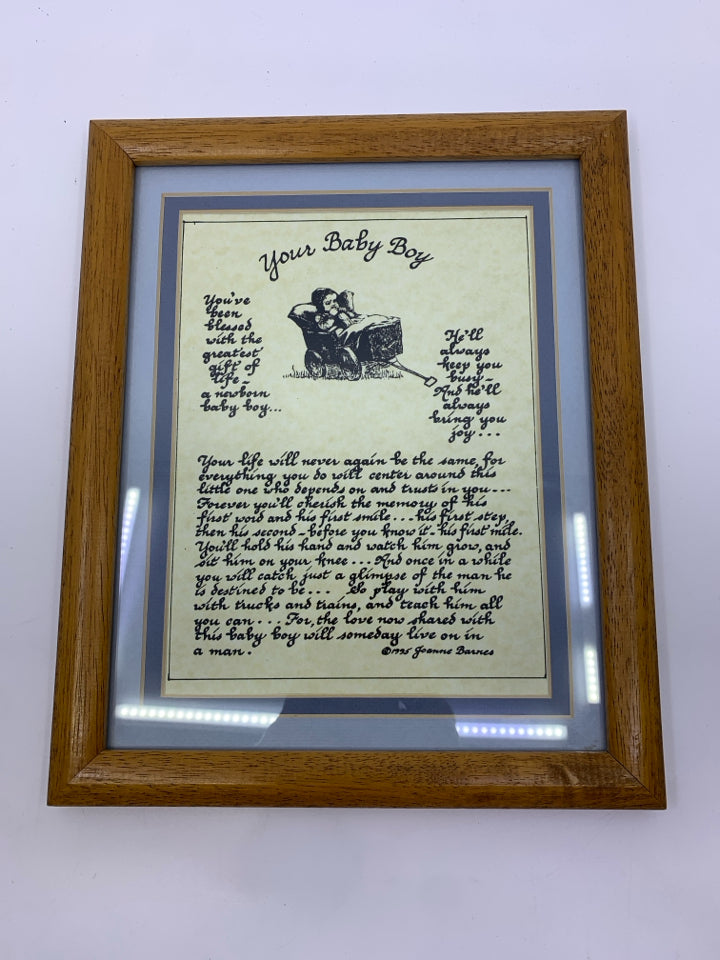 Your Baby Boy
You've
been
blessed
with the
greatest
gift of
life -
a newborn
baby boy...
He'll
always
keep you
busy -
And he'll
always
bring you
joy...
Your life will never again be the same, for
everything you do will center around this
little one who depends on and trusts in you...
Forever you'll cherish the memory of his
first word and his first smile... his first step,
then his second - before you know it - his first mile.
You'll hold his hand and watch him grow, and
sit him on your knee... And once in a while
you will catch just a glimpse of the man he
is destined to be... So play with him
with trucks and trains, and teach him all
you can... For, the love now shared with
this baby boy will someday live on in
a man.
© 1995 Joanne Barnes